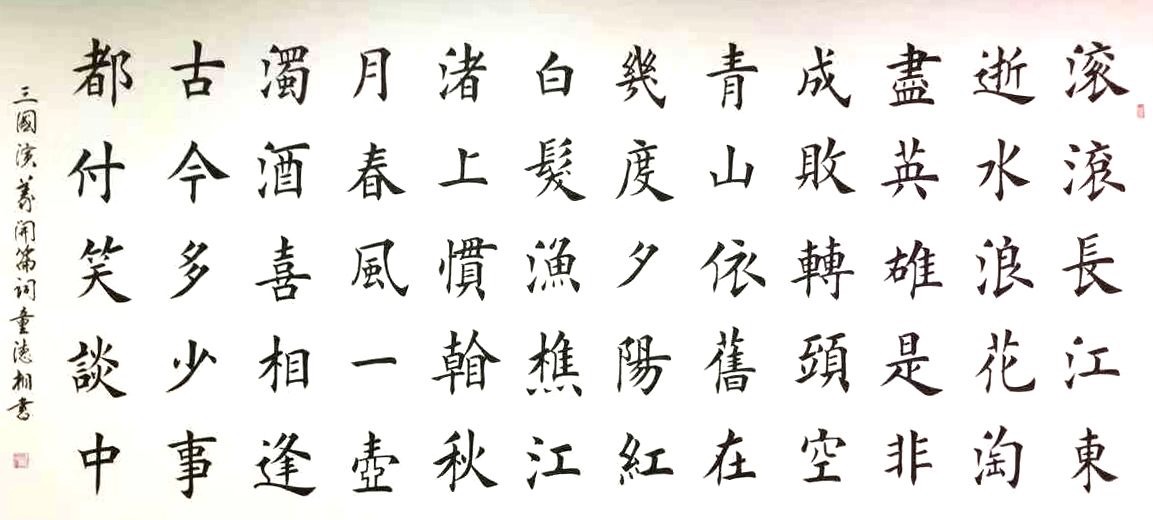 滚滚長江東
逝水浪花淘
盡英雄是非
成敗轉頭空
青山依舊在
幾度夕陽紅
白髮漁樵江
渚上慣看秋
月春風一壺
濁酒喜相逢
古今多少事
都付笑談中
三國演義開篇詞童德相書